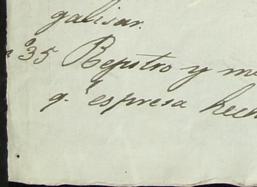 galisar.
35 Rejistro y me
q.e espresa hech